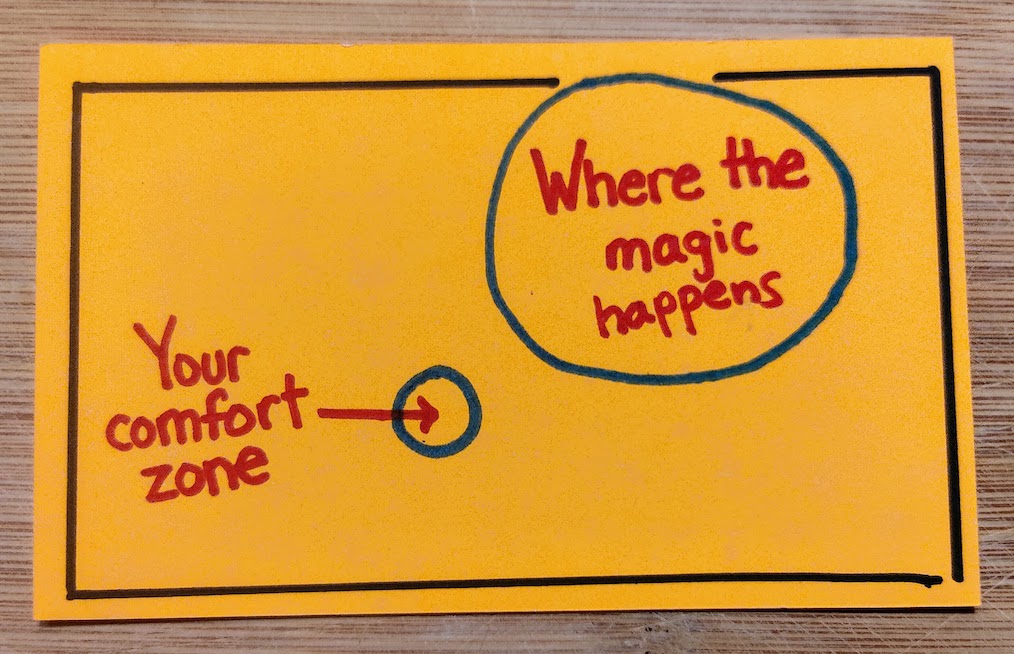 Where the
magic
happens
Your
comfort
zone